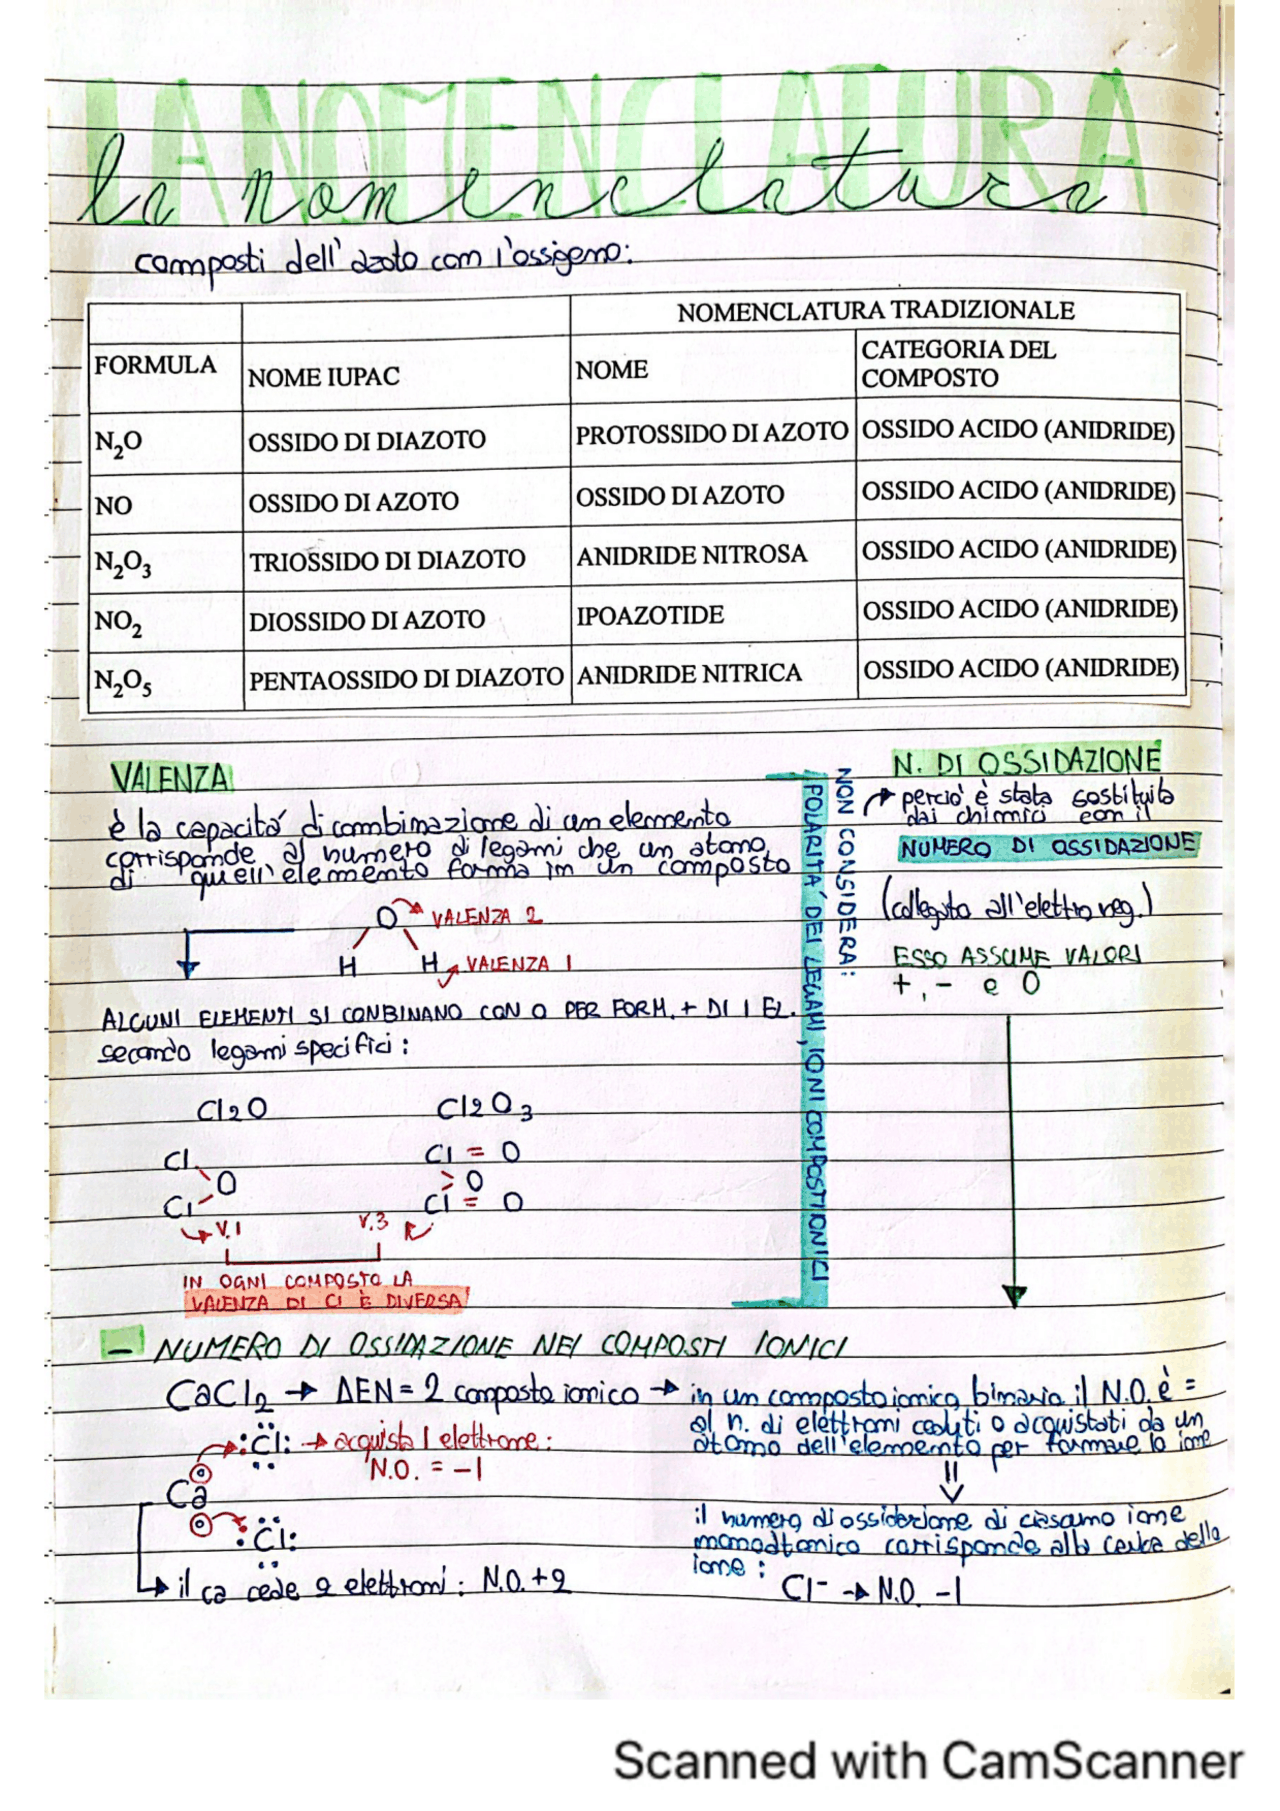 LA NOMENCLATURA
la nomenclatura
composti dell'azoto con l'ossigeno:
NOMENCLATURA TRADIZIONALE
FORMULA NOME IUPAC NOME CATEGORIA DEL
COMPOSTO
N₂O OSSIDO DI DIAZOTO PROTOSSIDO DI AZOTO OSSIDO ACIDO (ANIDRIDE)
NO OSSIDO DI AZOTO OSSIDO DI AZOTO OSSIDO ACIDO (ANIDRIDE)
N₂O₃ TRIOSSIDO DI DIAZOTO ANIDRIDE NITROSA OSSIDO ACIDO (ANIDRIDE)
NO₂ DIOSSIDO DI AZOTO IPOAZOTIDE OSSIDO ACIDO (ANIDRIDE)
N₂O₅ PENTAOSSIDO DI DIAZOTO ANIDRIDE NITRICA OSSIDO ACIDO (ANIDRIDE)
VALENZA
è la capacità di combinazione di un elemento
corrisponde al numero di legami che un atomo
di quell'elemento forma in un composto
O → VALENZA 2
H H → VALENZA 1
ALCUNI ELEMENTI SI CONBINANO CON O PER FORM. + DI 1 EL.
secondo legami specifici:
Cl₂O Cl₂O₃
Cl Cl = O
O O
Cl Cl = O
V.1 V.3
IN OGNI COMPOSTO LA
VALENZA DI Cl È DIVERSA
NON CONSIDERA:
POLARITA' DEI LEGAMI, IONI COMPOSTI IONICI
N. DI OSSIDAZIONE
→ perciò è stata sostituita
dai chimici con il
NUMERO DI OSSIDAZIONE
(collegato all'elettroneg.)
ESSO ASSUME VALORI
+, - e 0
- NUMERO DI OSSIDAZIONE NEI COMPOSTI IONICI
CaCl₂ → ΔEN = 2 composto ionico → in un composto ionico binario il N.O. è =
al n. di elettroni ceduti o acquistati da un
atomo dell'elemento per formare lo ione
:Cl: → acquista 1 elettrone:
N.O. = -1
Ca
:Cl:
→ il ca cede 2 elettroni: N.O. +2
il numero di ossidazione di ciascuno ione
monoatomico corrisponde alla carica dello
ione:
Cl⁻ → N.O. -1
Scanned with CamScanner